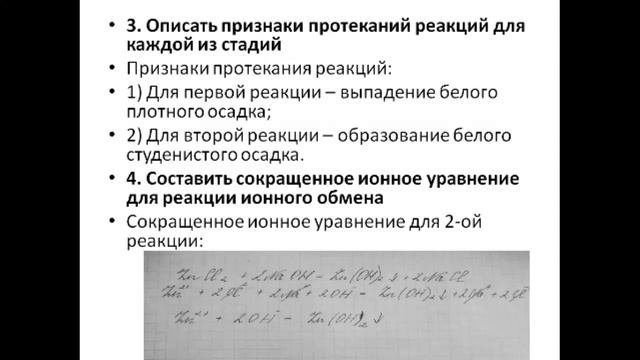 • 3. Описать признаки протеканий реакций для
каждой из стадий
• Признаки протекания реакций:
• 1) Для первой реакции – выпадение белого
плотного осадка;
• 2) Для второй реакции – образование белого
студенистого осадка.
• 4. Составить сокращенное ионное уравнение
для реакции ионного обмена
• Сокращенное ионное уравнение для 2-ой
реакции:
ZnCl₂ + 2NaOH = Zn(OH)₂↓ + 2NaCl
Zn²⁺ + 2Cl⁻ + 2Na⁺ + 2OH⁻ = Zn(OH)₂↓ + 2Na⁺ + 2Cl⁻
Zn²⁺ + 2OH⁻ = Zn(OH)₂↓